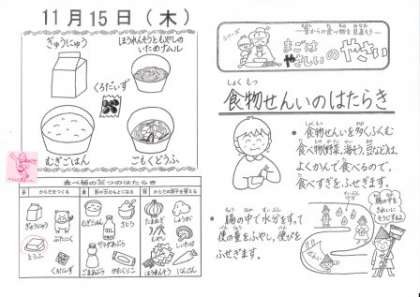 11月15日(木)
ぎゅうにゅう
ほうれんそうともやしの
いためナムル
くろだいず
むぎごはん
ごもくどうふ
食べ物の三つのはたらき
からだをつくる
ぎゅうにゅう
ぶたにく
とうふ
くろだいず
むぎごはん
さとう
ごまあぶら
かたくりこ
からだの調子を整える
しいたけ
ほうれんそう
にんじん
まごは
やさしいの
やさい
しょくもつ
食物せんいのはたらき
・食物せんいを多くふくむ
食べ物(野菜、海そう、豆など)は、
よくかんで食べるので、
食べすぎをふせぎます。
・腸の中で水分をすって
便の量をふやし、便ぴを
ふせぎます。